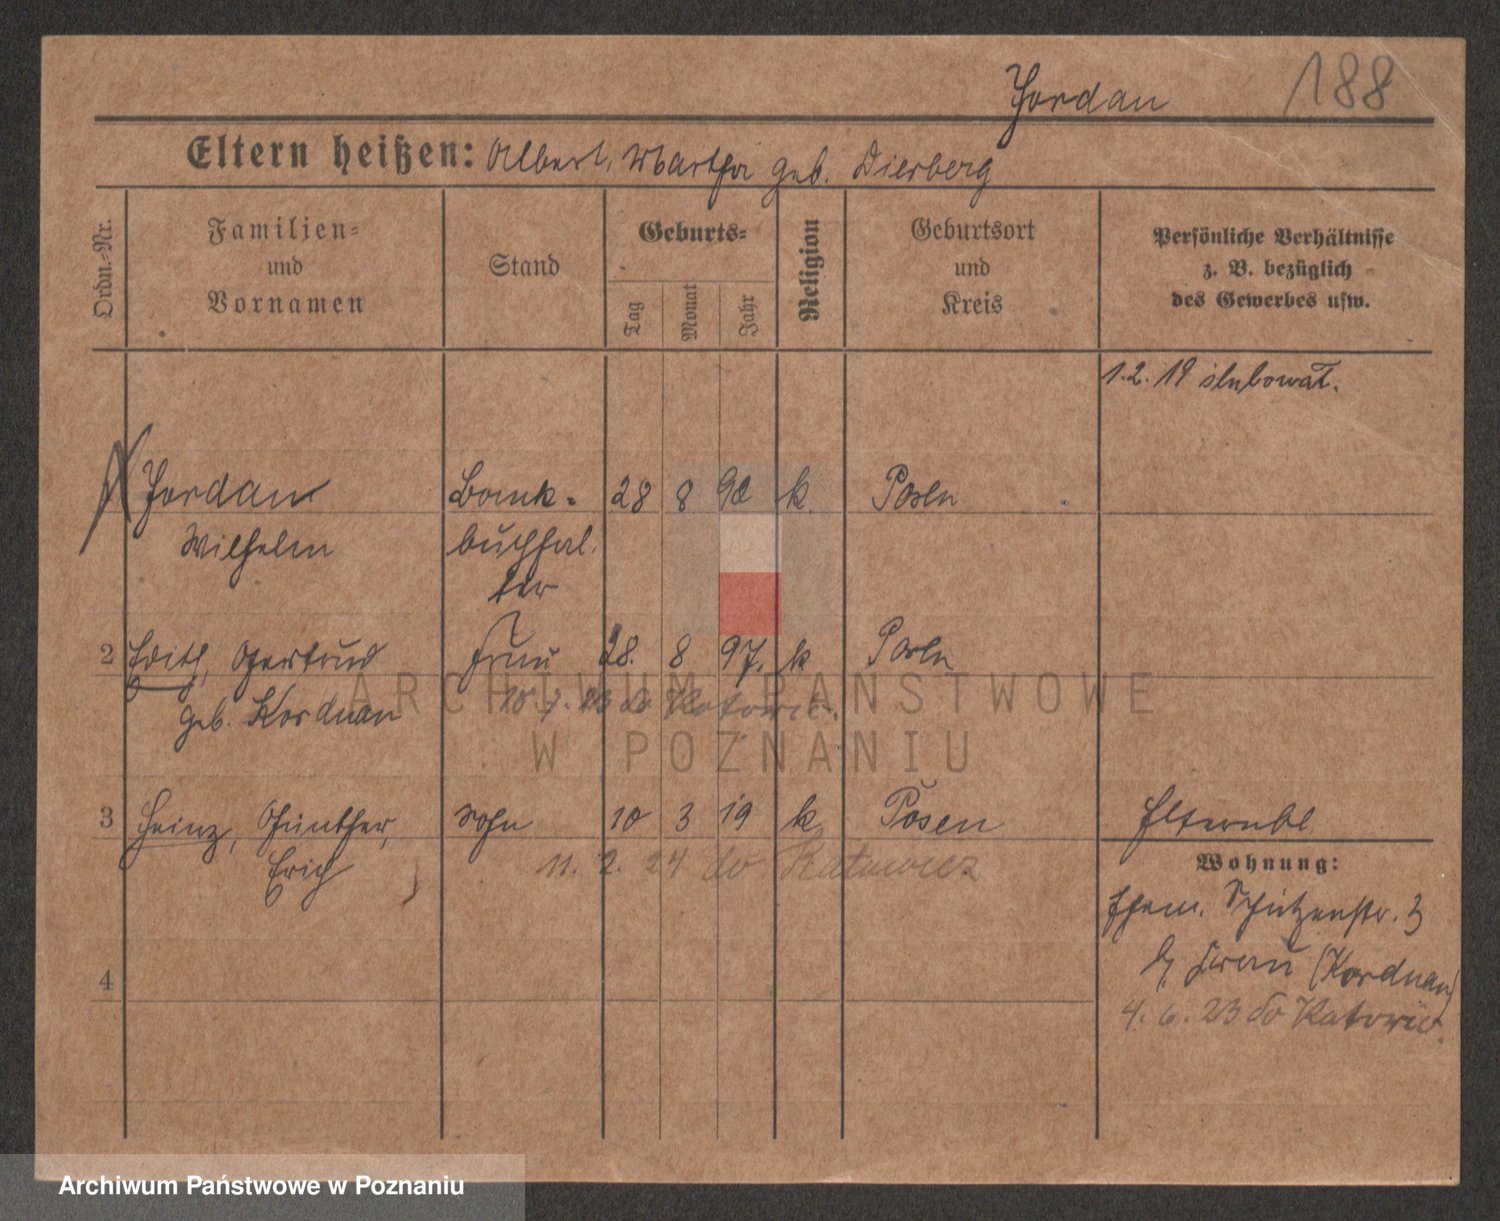 Jordan 188
Eltern heißen: Albert, Martha geb. Dierberg
Ordn.-Nr.
Familien-
und
Vornamen
Stand
Geburts-
Tag
Monat
Jahr
Religion
Geburtsort
und
Kreis
Persönliche Verhältnisse
z. B. bezüglich
des Gewerbes usw.
1.2.19 ślubował.
Jordan Bank- 28 8 90 k. Posen
Wilhelm buchhal.
ter
2 Edith, Gertrud Frau 28. 8 97. k Posen
geb. Kordnan do Katowic.
3 Heinz, Günther, Sohn 10 3 19 k Posen
Erich
11. 2. 24 do Katowicz
Elternbl.
Wohnung:
Ehem. Schützenstr. 3
(Kordnan)
4. 6. 23 do Katowic.
4
ARCHIWUM PAŃSTWOWE
W POZNANIU
Archiwum Państwowe w Poznaniu